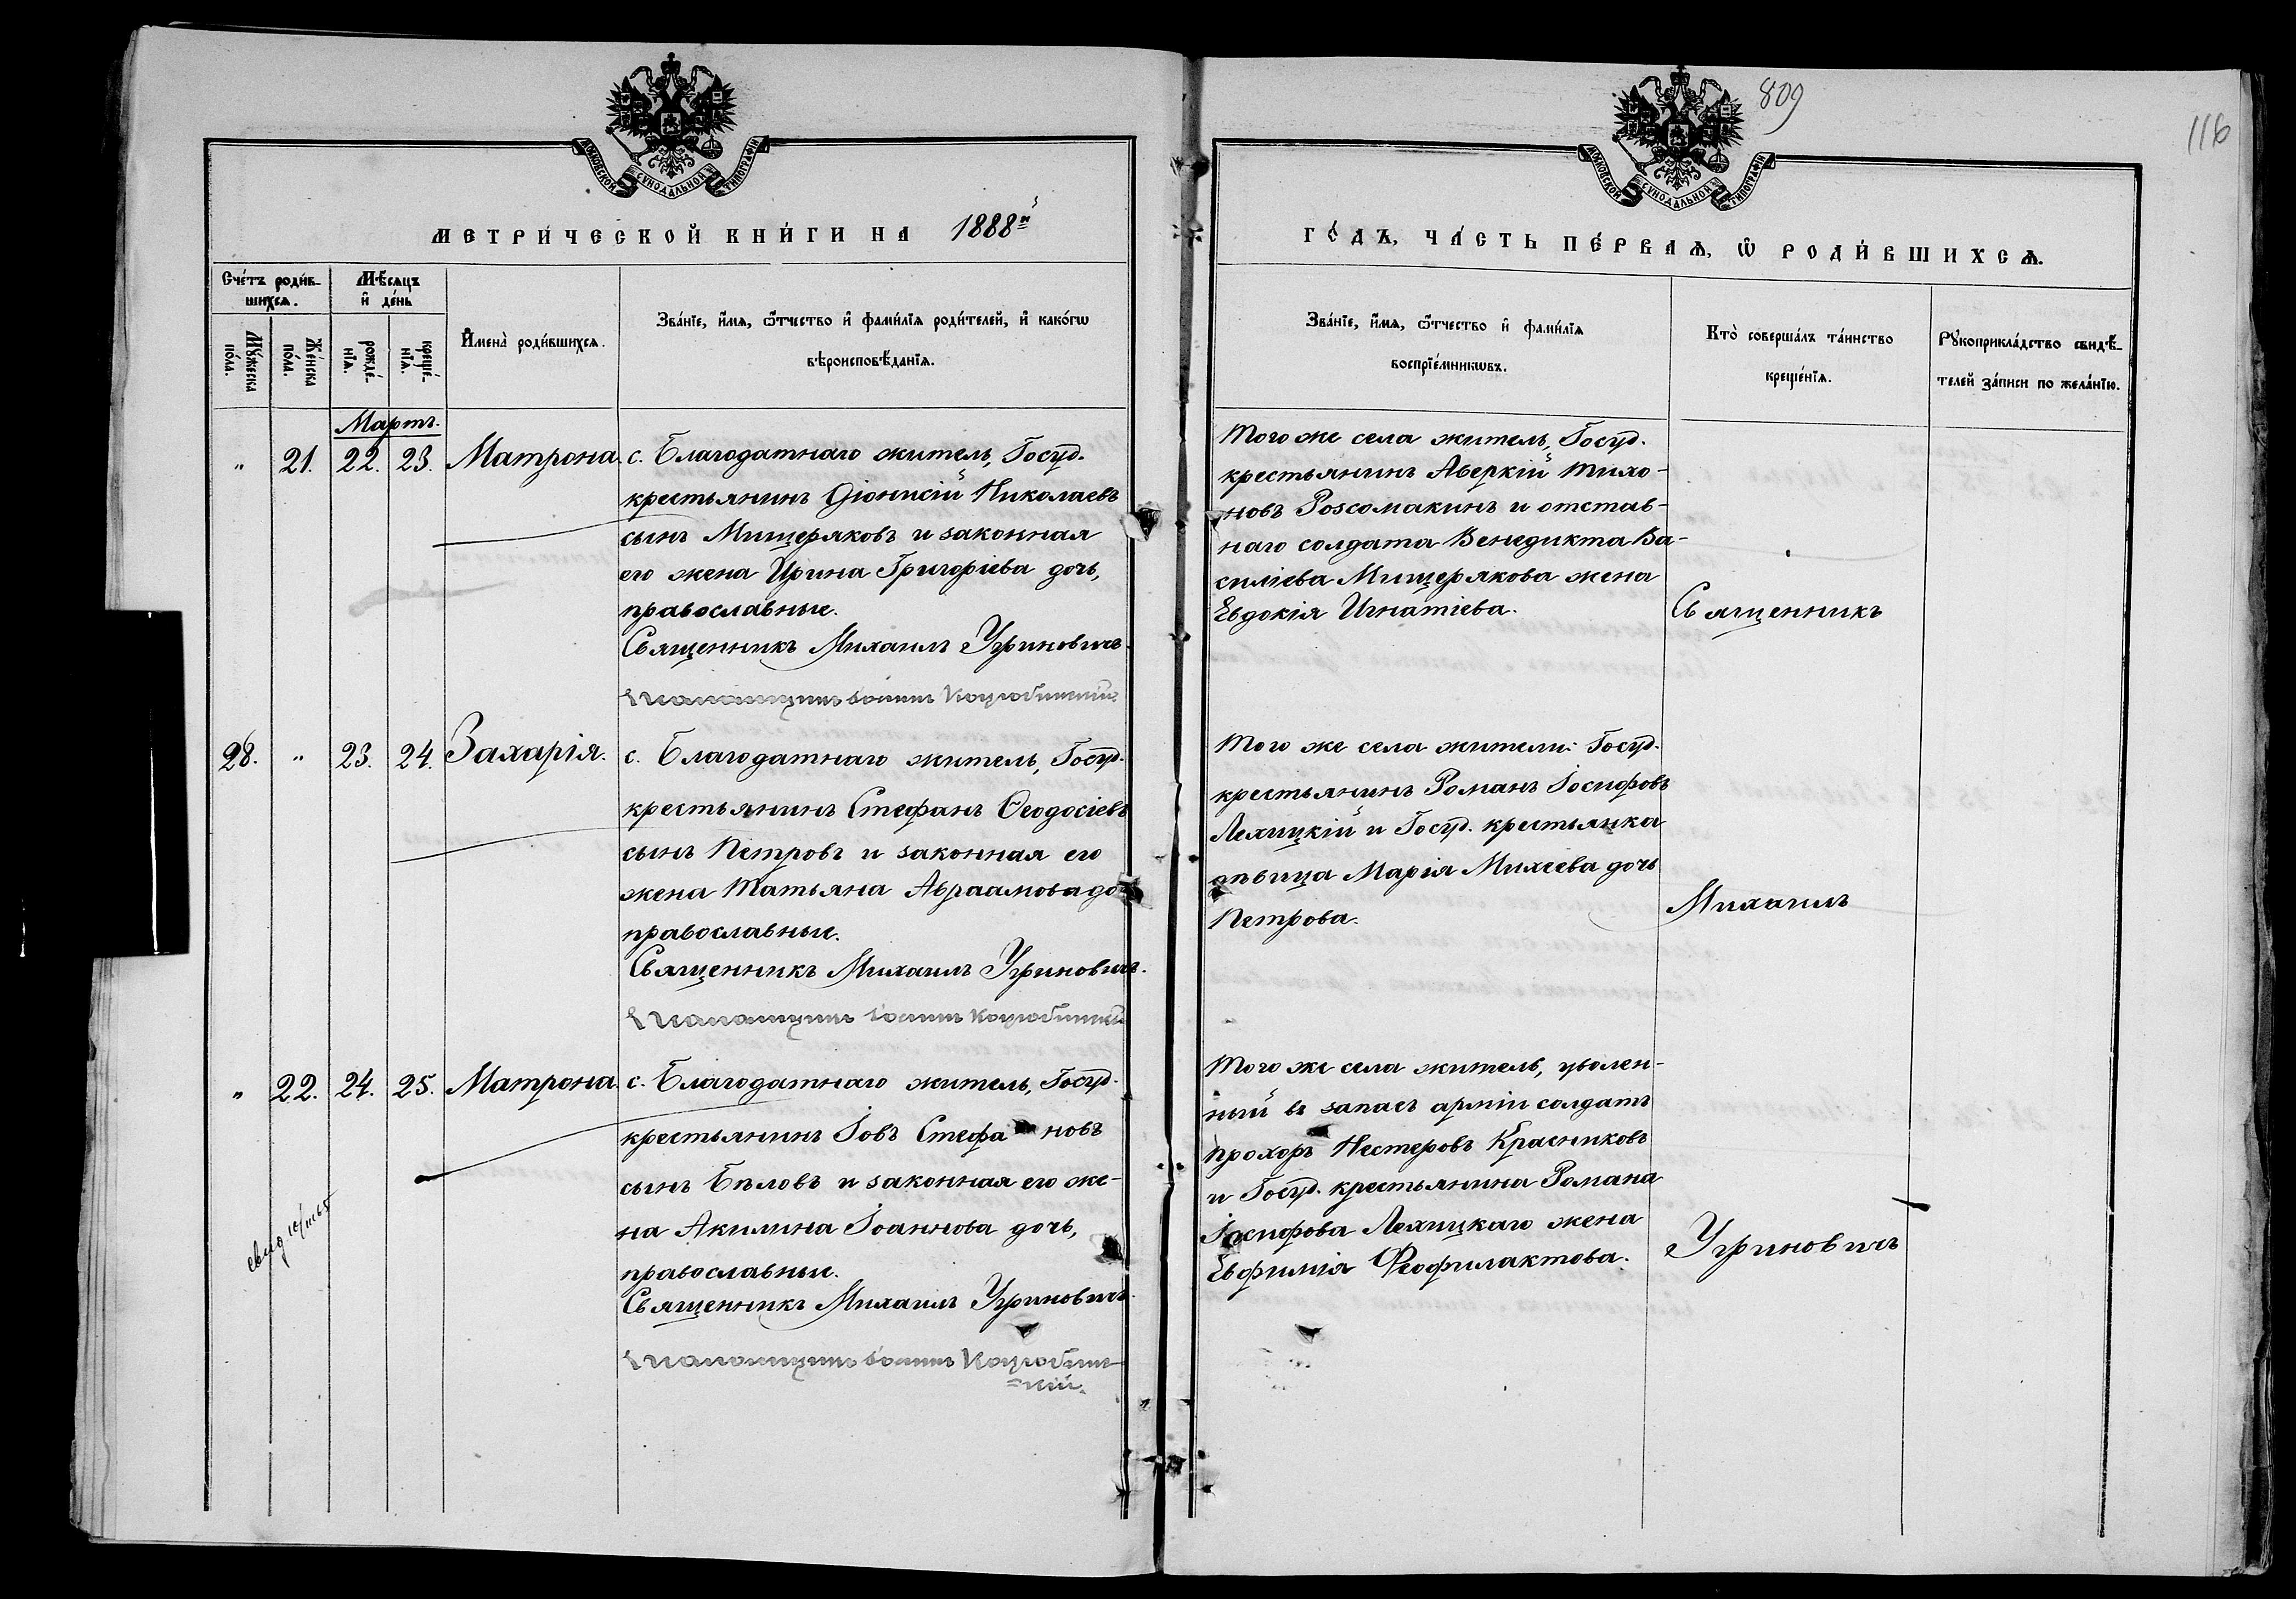 809
116
МОСКОВСКОЙ СУНОДАЛЬНОЙ ТИПОГРАФІИ
МОСКОВСКОЙ СУНОДАЛЬНОЙ ТИПОГРАФІИ
МЕТРИ́ЧЕСКОЙ КНИ́ГИ НА 1888й
ГО́ДЪ, ЧА́СТЬ ПЕ́РВАѦ, Ѡ҆ РОДИ́ВШИХСѦ.
Сче́тъ роди́в-
шихсѧ.
Мѣ́сѧцъ
и҆ де́нь
Мꙋ́жеска
по́ла.
Же́нска
по́ла.
рожде́-
нїѧ.
креще́-
нїѧ.
И҆мена̀ роди́вшихсѧ.
Зва́нїе, и҆́мѧ, ѻ҆́тчество и҆ фами́лїѧ роди́телей, и҆ како́гѡ
вѣроисповѣ́данїѧ.
Зва́нїе, и҆́мѧ, ѻ҆́тчество и҆ фами́лїѧ
воспрїе́мникѡвъ.
Кто̀ соверша́лъ та́инство
креще́нїѧ.
Рꙋкоприкла́дство свидѣ́-
телей за́писи по жела́нїю.
Мартъ.
" 21. 22. 23. Матрона.
с. Благодатнаго житель, Госуд.
крестьянинъ Діонисій Николаевъ
сынъ Мищеряковъ и законная
его жена Ирина Григоріева дочь,
православные.
Священникъ Михаилъ Угриновичъ.
Псаломщикъ Іоаннъ Коцюбинскій.
Того же села житель, Госуд.
крестьянинъ Аверкій Тихо-
новъ Россомакинъ и отстав-
наго солдата Венедикта Ва-
силіева Мищерякова жена
Евдокія Игнатіева.
Священникъ
28. " 23. 24. Захарія.
с. Благодатнаго житель, Госуд.
крестьянинъ Стефанъ Ѳеодосіевъ
сынъ Петровъ и законная его
жена Татьяна Авраамова до
православные.
Священникъ Михаилъ Угриновичъ.
Псаломщикъ Іоаннъ Коцюбинскій
Того же села жители: Госуд.
крестьянинъ Романъ Іосифовъ
Лехицкій и Госуд. крестьянка
дѣвица Марія Михеева дочь
Петрова.
Михаилъ
" 22. 24. 25. Матрона.
с. Благодатнаго житель, Госуд.
крестьянинъ Іовъ Стефановъ
сынъ Бѣловъ и законная его же-
на Акилина Іоаннова дочь,
православные.
Священникъ Михаилъ Угриновичъ.
Псаломщикъ Іоаннъ Коцюбин-
=скій.
Того же села житель, уволен-
ный въ запасъ арміи солдатъ
Прохоръ Нестеровъ Красниковъ
и Госуд. крестьянина Романа
Іосифова Лехицкаго жена
Евфимія Феофилактова.
Угриновичъ